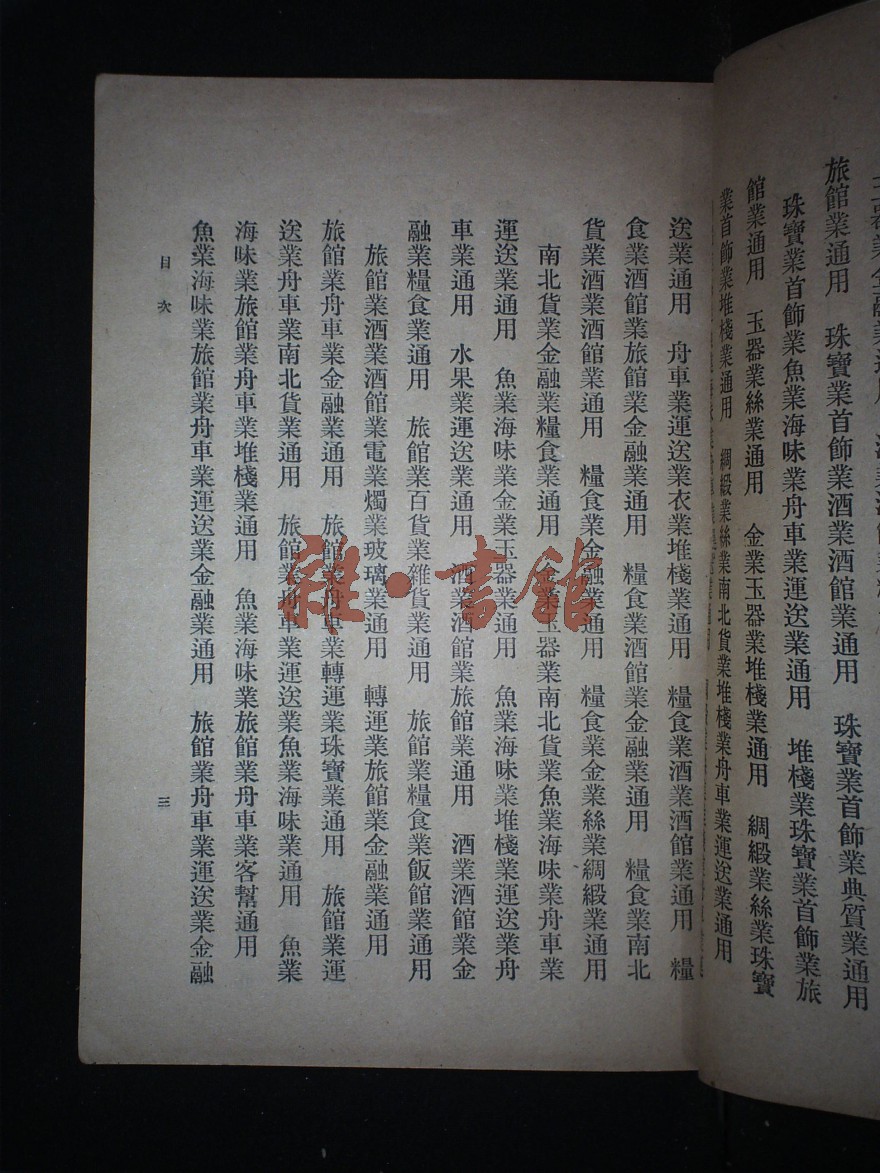 器業金融業通用
旅館業通用　珠寶業首飾業酒業酒館業通用　珠寶業首飾業典質業通用
珠寶業首飾業魚業海味業舟車業運送業通用　堆棧業珠寶業首飾業旅
館業通用　玉器業絲業通用　金業玉器業堆棧業通用　綢緞業絲業珠寶
業首飾業堆棧業通用　綢緞業絲業南北貨業堆棧業舟車業運送業通用
送業通用　舟車業運送衣業堆棧業通用　糧食業酒業酒館業通用　糧
食業酒館業旅館業金融業通用　糧食業酒館業金融業通用　糧食業南北
貨業酒業酒館業通用　糧食業金融業通用　糧食業金業絲業綢緞業通用
南北貨業金融業糧食業通用　金業玉器業南北貨業魚業海味業舟車業
運送業通用　魚業海味業金業玉器業通用　魚業海味業堆棧業運送業舟
車業通用　水果業運送業通用　酒業酒館業旅館業通用　酒業酒館業金
融業糧食業通用　旅館業百貨業雜貨業通用　旅館業糧食業飯館業通用
旅館業酒業酒館業電業燭業玻璃業通用　轉運業旅館業金融業通用
旅館業舟車業金融業通用　旅館業舟車業轉運業珠寶業通用　旅館業運
送業舟車業南北貨業通用　旅館業舟車業運送業魚業海味業通用　魚業
海味業旅館業舟車業堆棧業通用　魚業海味業旅館業舟車業客幫通用
魚業海味業旅館業舟車業運送業金融業通用　旅館業舟車業運送業金融
目次
三
雜·書館